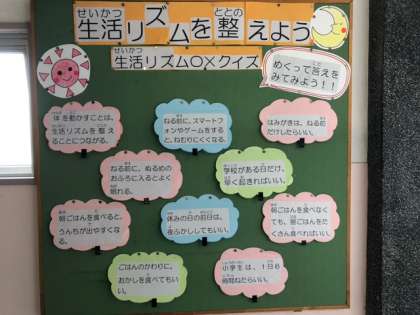 生活リズムを整えよう
せいかつ
ととの
生活リズム〇×クイズ
せいかつ
めくって答えを
みてみよう！！
体を動かすことは、
生活リズムを整え
ることにつながる。
ねる前に、スマートフ
ォンやゲームをする
と、ねむりにくくなる。
はみがきは、ねる前
だけしたらいい。
ねる前に、ぬるめの
おふろに入るとよく
眠れる。
学校がある日だけ。
早く起きればいい。
朝ごはんを食べると、
うんちが出やすくな
る。
休みの日の前日は、
夜ふかししてもいい。
朝ごはんを食べなく
ても、昼ごはんをた
くさん食べればいい。
ごはんのかわりに、
おかしを食べてもい
い。
小学生は、1日6
時間ねたらいい。